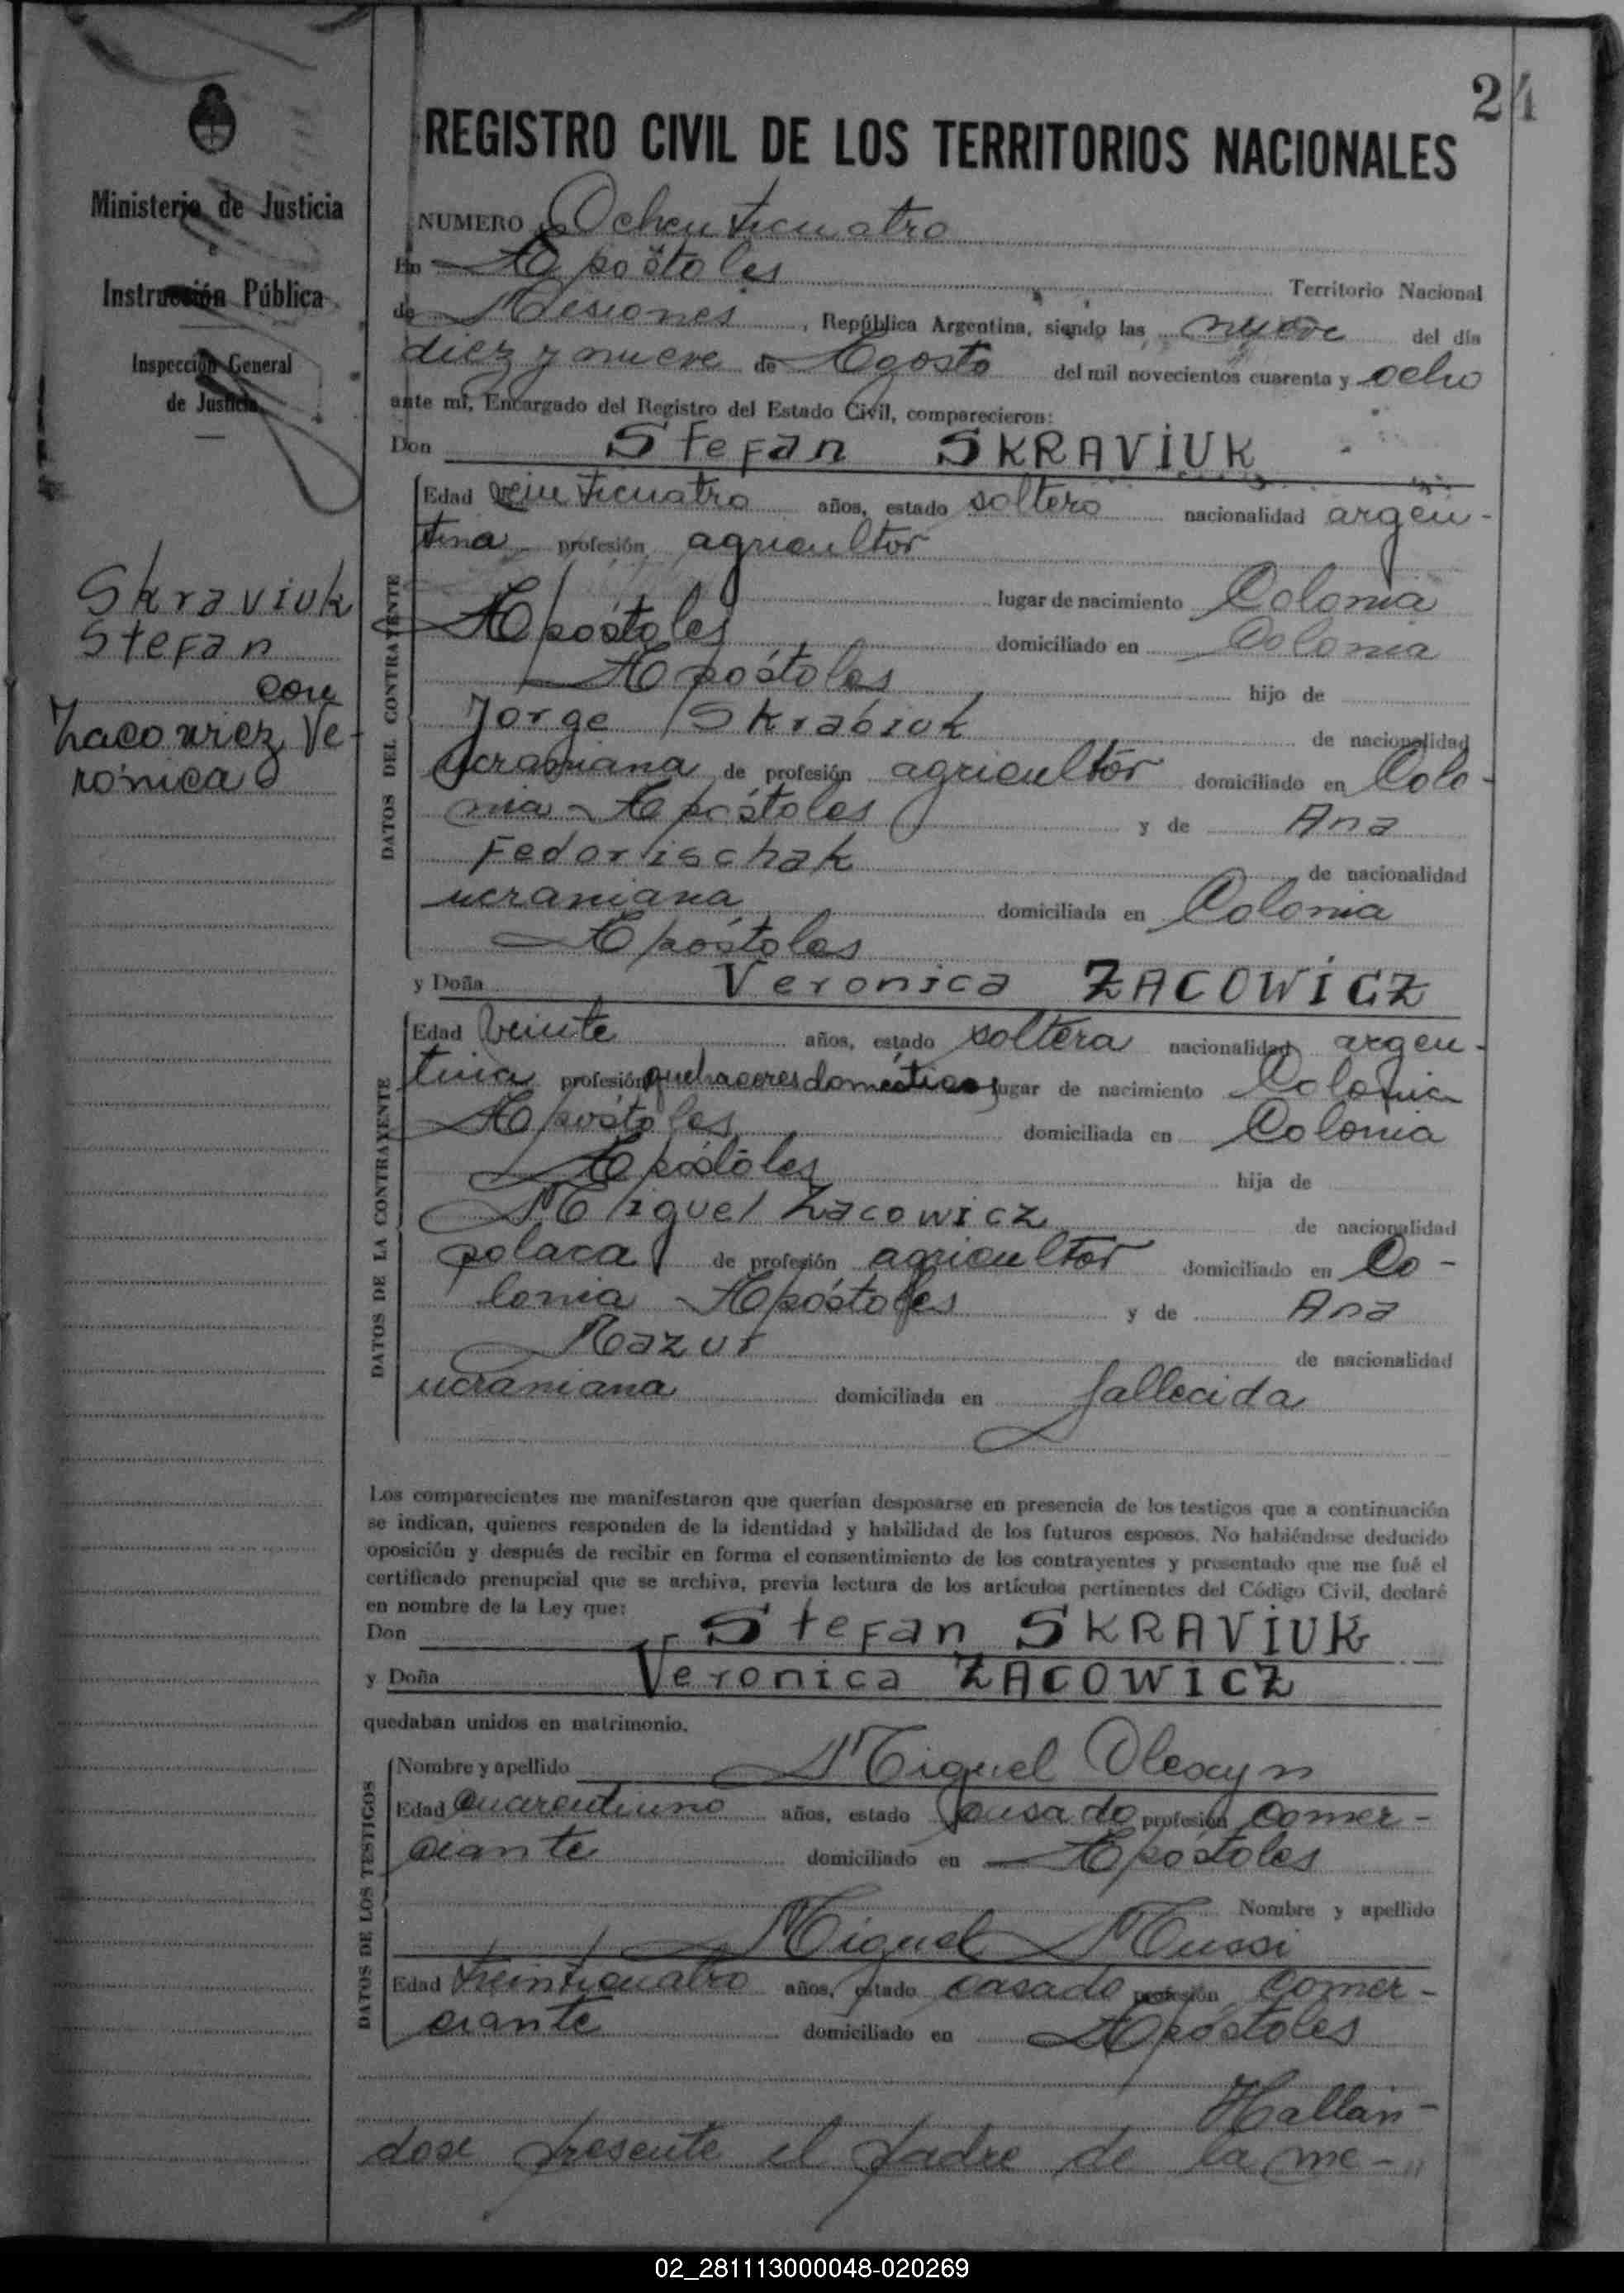 24
REGISTRO CIVIL DE LOS TERRITORIOS NACIONALES
Ministerio de Justicia
e
Instrucción Pública
Inspección General
de Justicia
Skraviuk
Stefan
con
Zacowicz Ve-
rónica
NUMERO Ochenticuatro
En Apóstoles Territorio Nacional
de Misiones, República Argentina, siendo las nueve del día
diez y nueve de Agosto del mil novecientos cuarenta y ocho
ante mí, Encargado del Registro del Estado Civil, comparecieron:
Don Stefan SKRAVIUK
DATOS DEL CONTRAYENTE
Edad veinticuatro años, estado soltero nacionalidad argen-
tina profesión agricultor
lugar de nacimiento Colonia
Apóstoles domiciliado en Colonia
Apóstoles hijo de
Jorge Skrabiuk de nacionalidad
ucraniana de profesión agricultor domiciliado en Colo-
nia Apóstoles y de Ana
Fedorischak de nacionalidad
ucraniana domiciliada en Colonia
Apóstoles
y Doña Veronica ZACOWICZ
DATOS DE LA CONTRAYENTE
Edad veinte años, estado soltera nacionalidad argen-
tina profesión quehaceres domésticos lugar de nacimiento Colonia
Apóstoles domiciliada en Colonia
Apóstoles hija de
Miguel Zacowicz de nacionalidad
polaca de profesión agricultor domiciliado en Co-
lonia Apóstoles y de Ana
Mazur de nacionalidad
ucraniana domiciliada en fallecida
Los comparecientes me manifestaron que querían desposarse en presencia de los testigos que a continuación
se indican, quienes responden de la identidad y habilidad de los futuros esposos. No habiéndose deducido
oposición y después de recibir en forma el consentimiento de los contrayentes y presentado que me fué el
certificado prenupcial que se archiva, previa lectura de los artículos pertinentes del Código Civil, declaré
en nombre de la Ley que:
Don Stefan SKRAVIUK
y Doña Veronica ZACOWICZ
quedaban unidos en matrimonio.
DATOS DE LOS TESTIGOS
Nombre y apellido Miguel Olexyn
Edad cuarentiuno años, estado casado profesión comer-
ciante domiciliado en Apóstoles
Nombre y apellido
Miguel Mussi
Edad treinticuatro años, estado casado profesión comer-
ciante domiciliado en Apóstoles
Hallán-
dose presente el padre de la me-
02_281113000048-020269